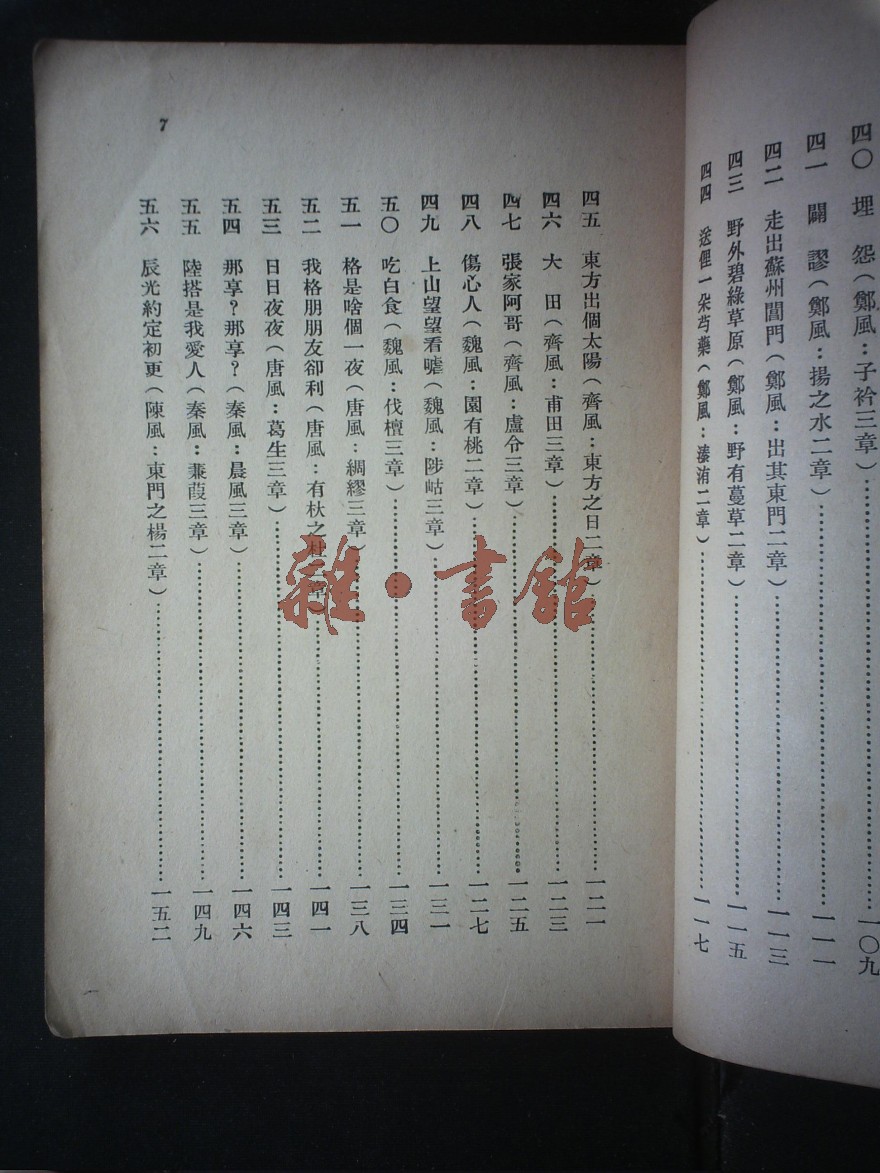 四〇 埋 怨（鄭風：子衿三章）……一〇九
四一 闢 謬（鄭風：揚之水二章）……一一一
四二 走出蘇州閶門（鄭風：出其東門二章）……一一三
四三 野外碧綠草原（鄭風：野有蔓草二章）……一一五
四四 送俚一朵芍藥（鄭風：溱洧二章）……一一七
四五 東方出個太陽（齊風：東方之日二章）……一二一
四六 大 田（齊風：甫田三章）……一二三
四七 張家阿哥（齊風：盧令三章）……一二五
四八 傷心人（魏風：園有桃二章）……一二七
四九 上山望望看嘘（魏風：陟岵三章）……一三一
五〇 吃白食（魏風：伐檀三章）……一三四
五一 格是啥個一夜（唐風：綢繆三章）……一三八
五二 我格朋朋友卻利（唐風：有杕之杜 章）……一四一
五三 日日夜夜（唐風：葛生三章）……一四三
五四 那享？那享？（秦風：晨風三章）……一四六
五五 陸搭是我愛人（秦風：蒹葭三章）……一四九
五六 辰光約定初更（陳風：東門之楊二章）……一五二
7
雜·書館